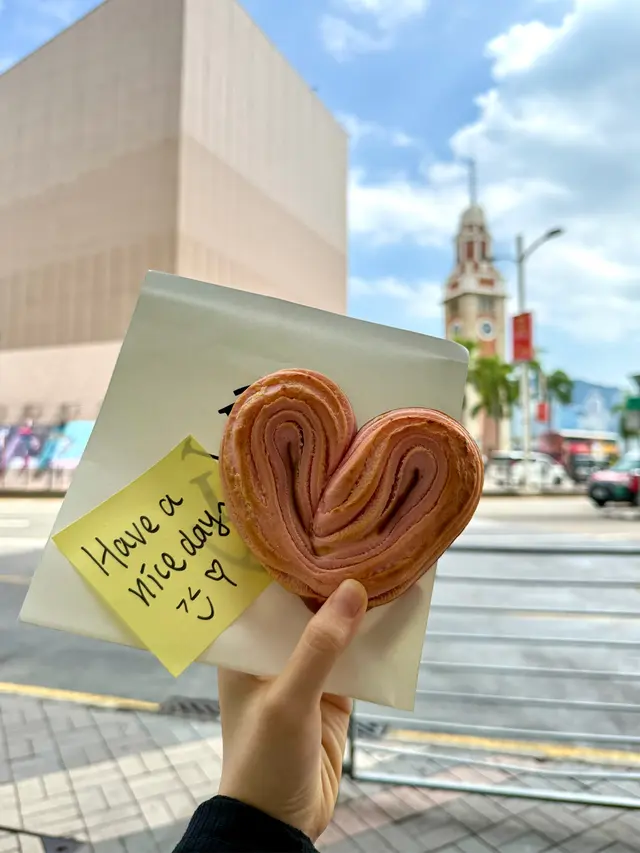 Have a
nice day